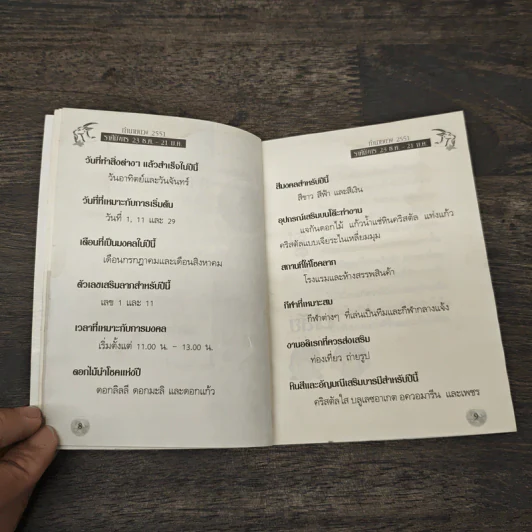 ทำนายดวง 2551
ราศีธนู 23 พ.ย. - 21 ธ.ค.
วันที่ทำสิ่งต่างๆ แล้วสำเร็จในปีนี้
วันอาทิตย์และวันจันทร์
วันที่ที่เหมาะกับการเริ่มต้น
วันที่ 1, 11 และ 29
เดือนที่เป็นมงคลในปีนี้
เดือนกรกฎาคมและเดือนสิงหาคม
ตัวเลขเสริมลาภสำหรับปีนี้
เลข 1 และ 11
เวลาที่เหมาะกับการมงคล
เริ่มตั้งแต่ 11.00 น. - 13.00 น.
ดอกไม้นำโชคแห่งปี
ดอกลิลลี่ ดอกมะลิ และดอกแก้ว
8
2551
21
สีมงคลสำหรับปีนี้
สีขาว สีฟ้า และสีเงิน
อุปกรณ์เสริมบนโต๊ะทำงาน
แจกันดอกไม้ แก้วน้ำแช่หินคริสตัล แท่งแก้ว
คริสตัลแบบเจียระไนเหลี่ยมมุม
สถานที่ให้โชคลาภ
โรงแรมและห้างสรรพสินค้า
กีฬาที่เหมาะสม
กีฬาต่างๆ ที่เล่นเป็นทีมและกีฬากลางแจ้ง
งานอดิเรกที่ควรส่งเสริม
ท่องเที่ยว ถ่ายรูป
หินสีและอัญมณีเสริมบารมีสำหรับปีนี้
คริสตัลใส บลูเลซอาเกต อความารีน และเพชร
9